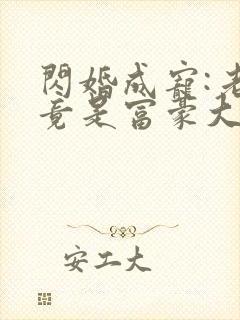 閃婚成寵:老
竟是富豪大
安工大